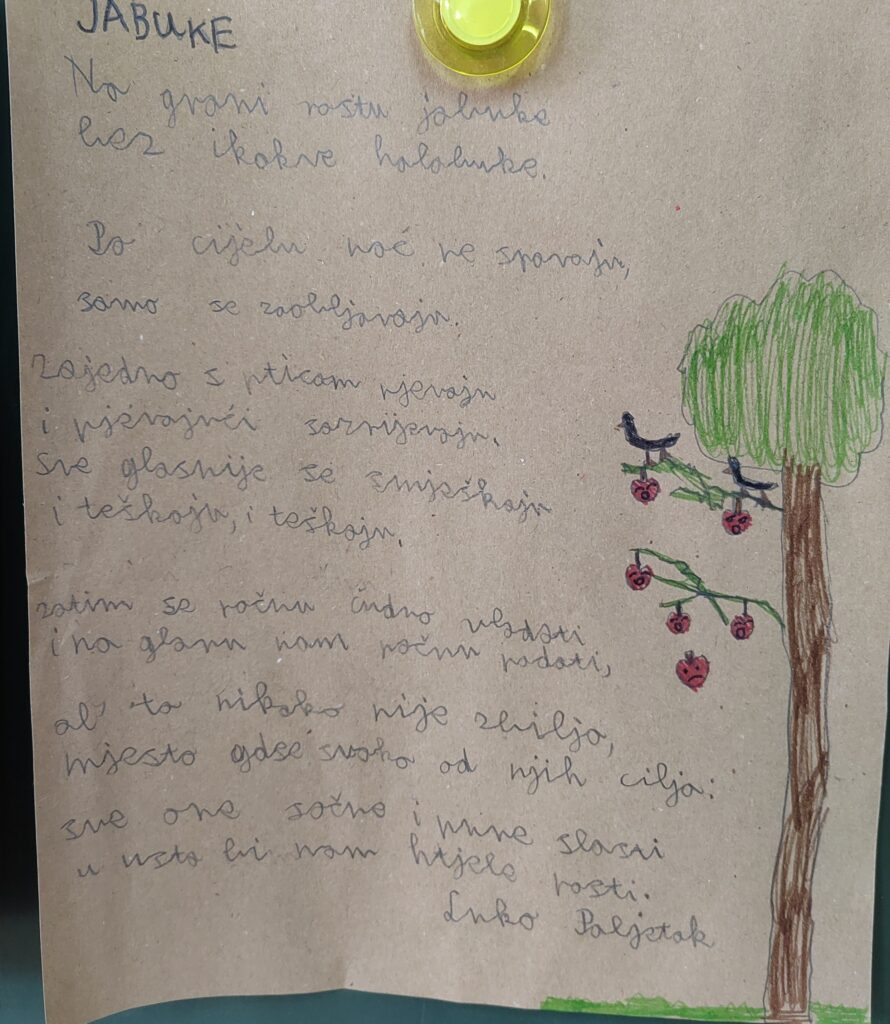 JABUKE
Na grani rastu jabuke
bez ikakve halabuke.
Po cijelu noć ne spavaju,
samo se zaobljavaju.
Zajedno s pticam pjevaju
i pjevajući sazrijevaju.
Sve glasnije se smješkaju
i teškaju, i teškaju,
zatim se počnu čudno vladati
i na glavu nam počnu padati,
al' to nikako nije zbilja,
mjesto gdse svaka od njih cilja:
sve one sočne i pune slasti
u usta bi nam htjele pasti.
Luko Paljetak